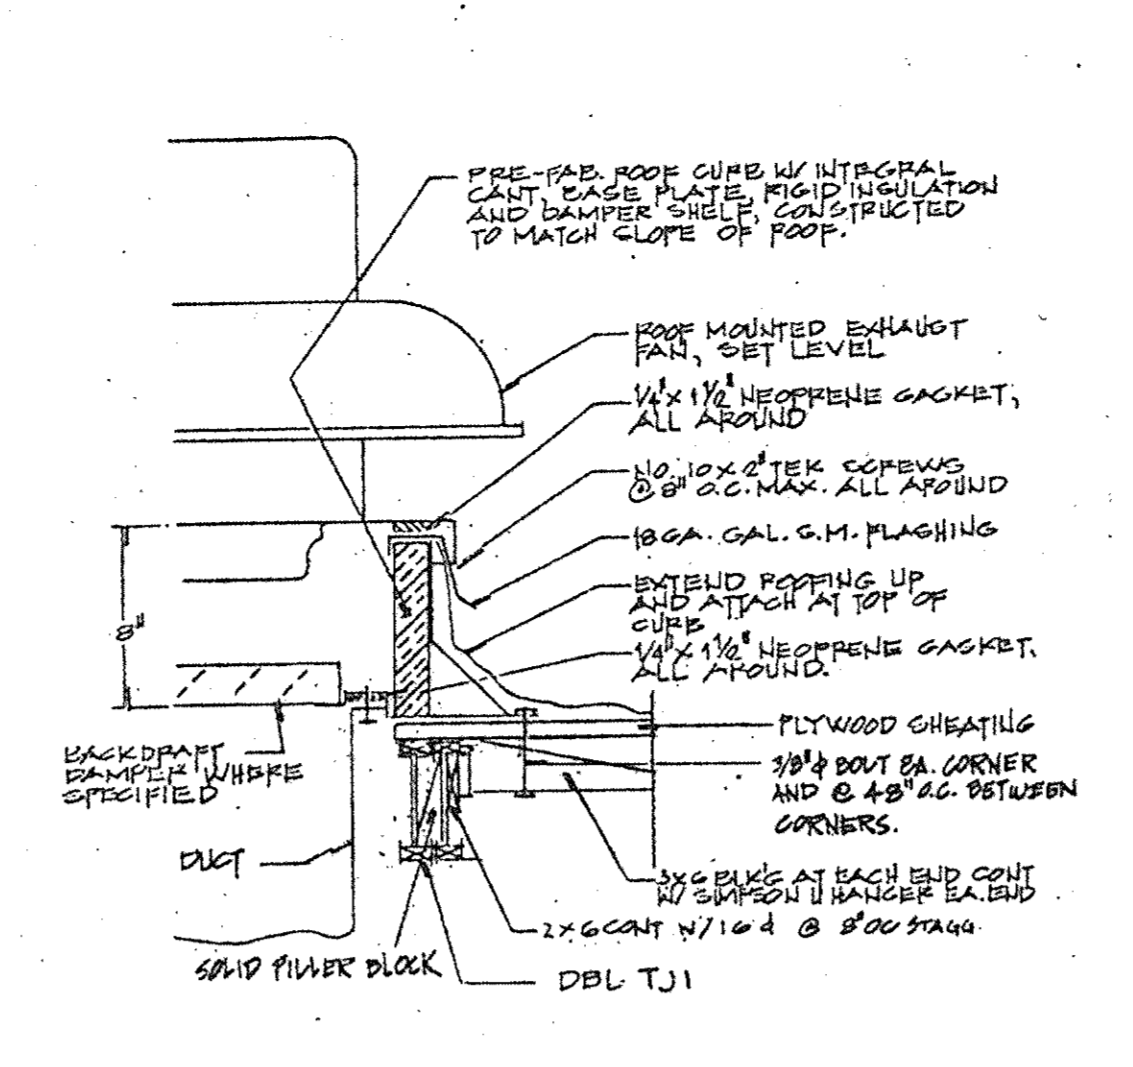 PRE-FAB. ROOF CURB W/ INTEGRAL
CANT, BASE PLATE, RIGID INSULATION
AND DAMPER SHELF, CONSTRUCTED
TO MATCH SLOPE OF ROOF.
ROOF MOUNTED EXHAUST
FAN, SET LEVEL
1/4" X 1 1/2" NEOPRENE GASKET,
ALL AROUND
NO. 10 X 2" TEK SCREWS
@ 8" O.C. MAX. ALL AROUND
18 GA. GAL. S.M. FLASHING
EXTEND ROOFING UP
AND ATTACH AT TOP OF
CURB
1/4" X 1 1/2" NEOPRENE GASKET.
ALL AROUND.
8"
PLYWOOD SHEATING
BACKDRAFT
DAMPER WHERE
SPECIFIED
3/8" φ BOLT EA. CORNER
AND @ 48" O.C. BETWEEN
CORNERS.
DUCT
3X6 BLK'G AT EACH END CONT
W/ SIMPSON U HANGER EA. END
2X6 CONT W/ 16d @ 8" OC STAGG.
SOLID FILLER BLOCK
DBL TJI